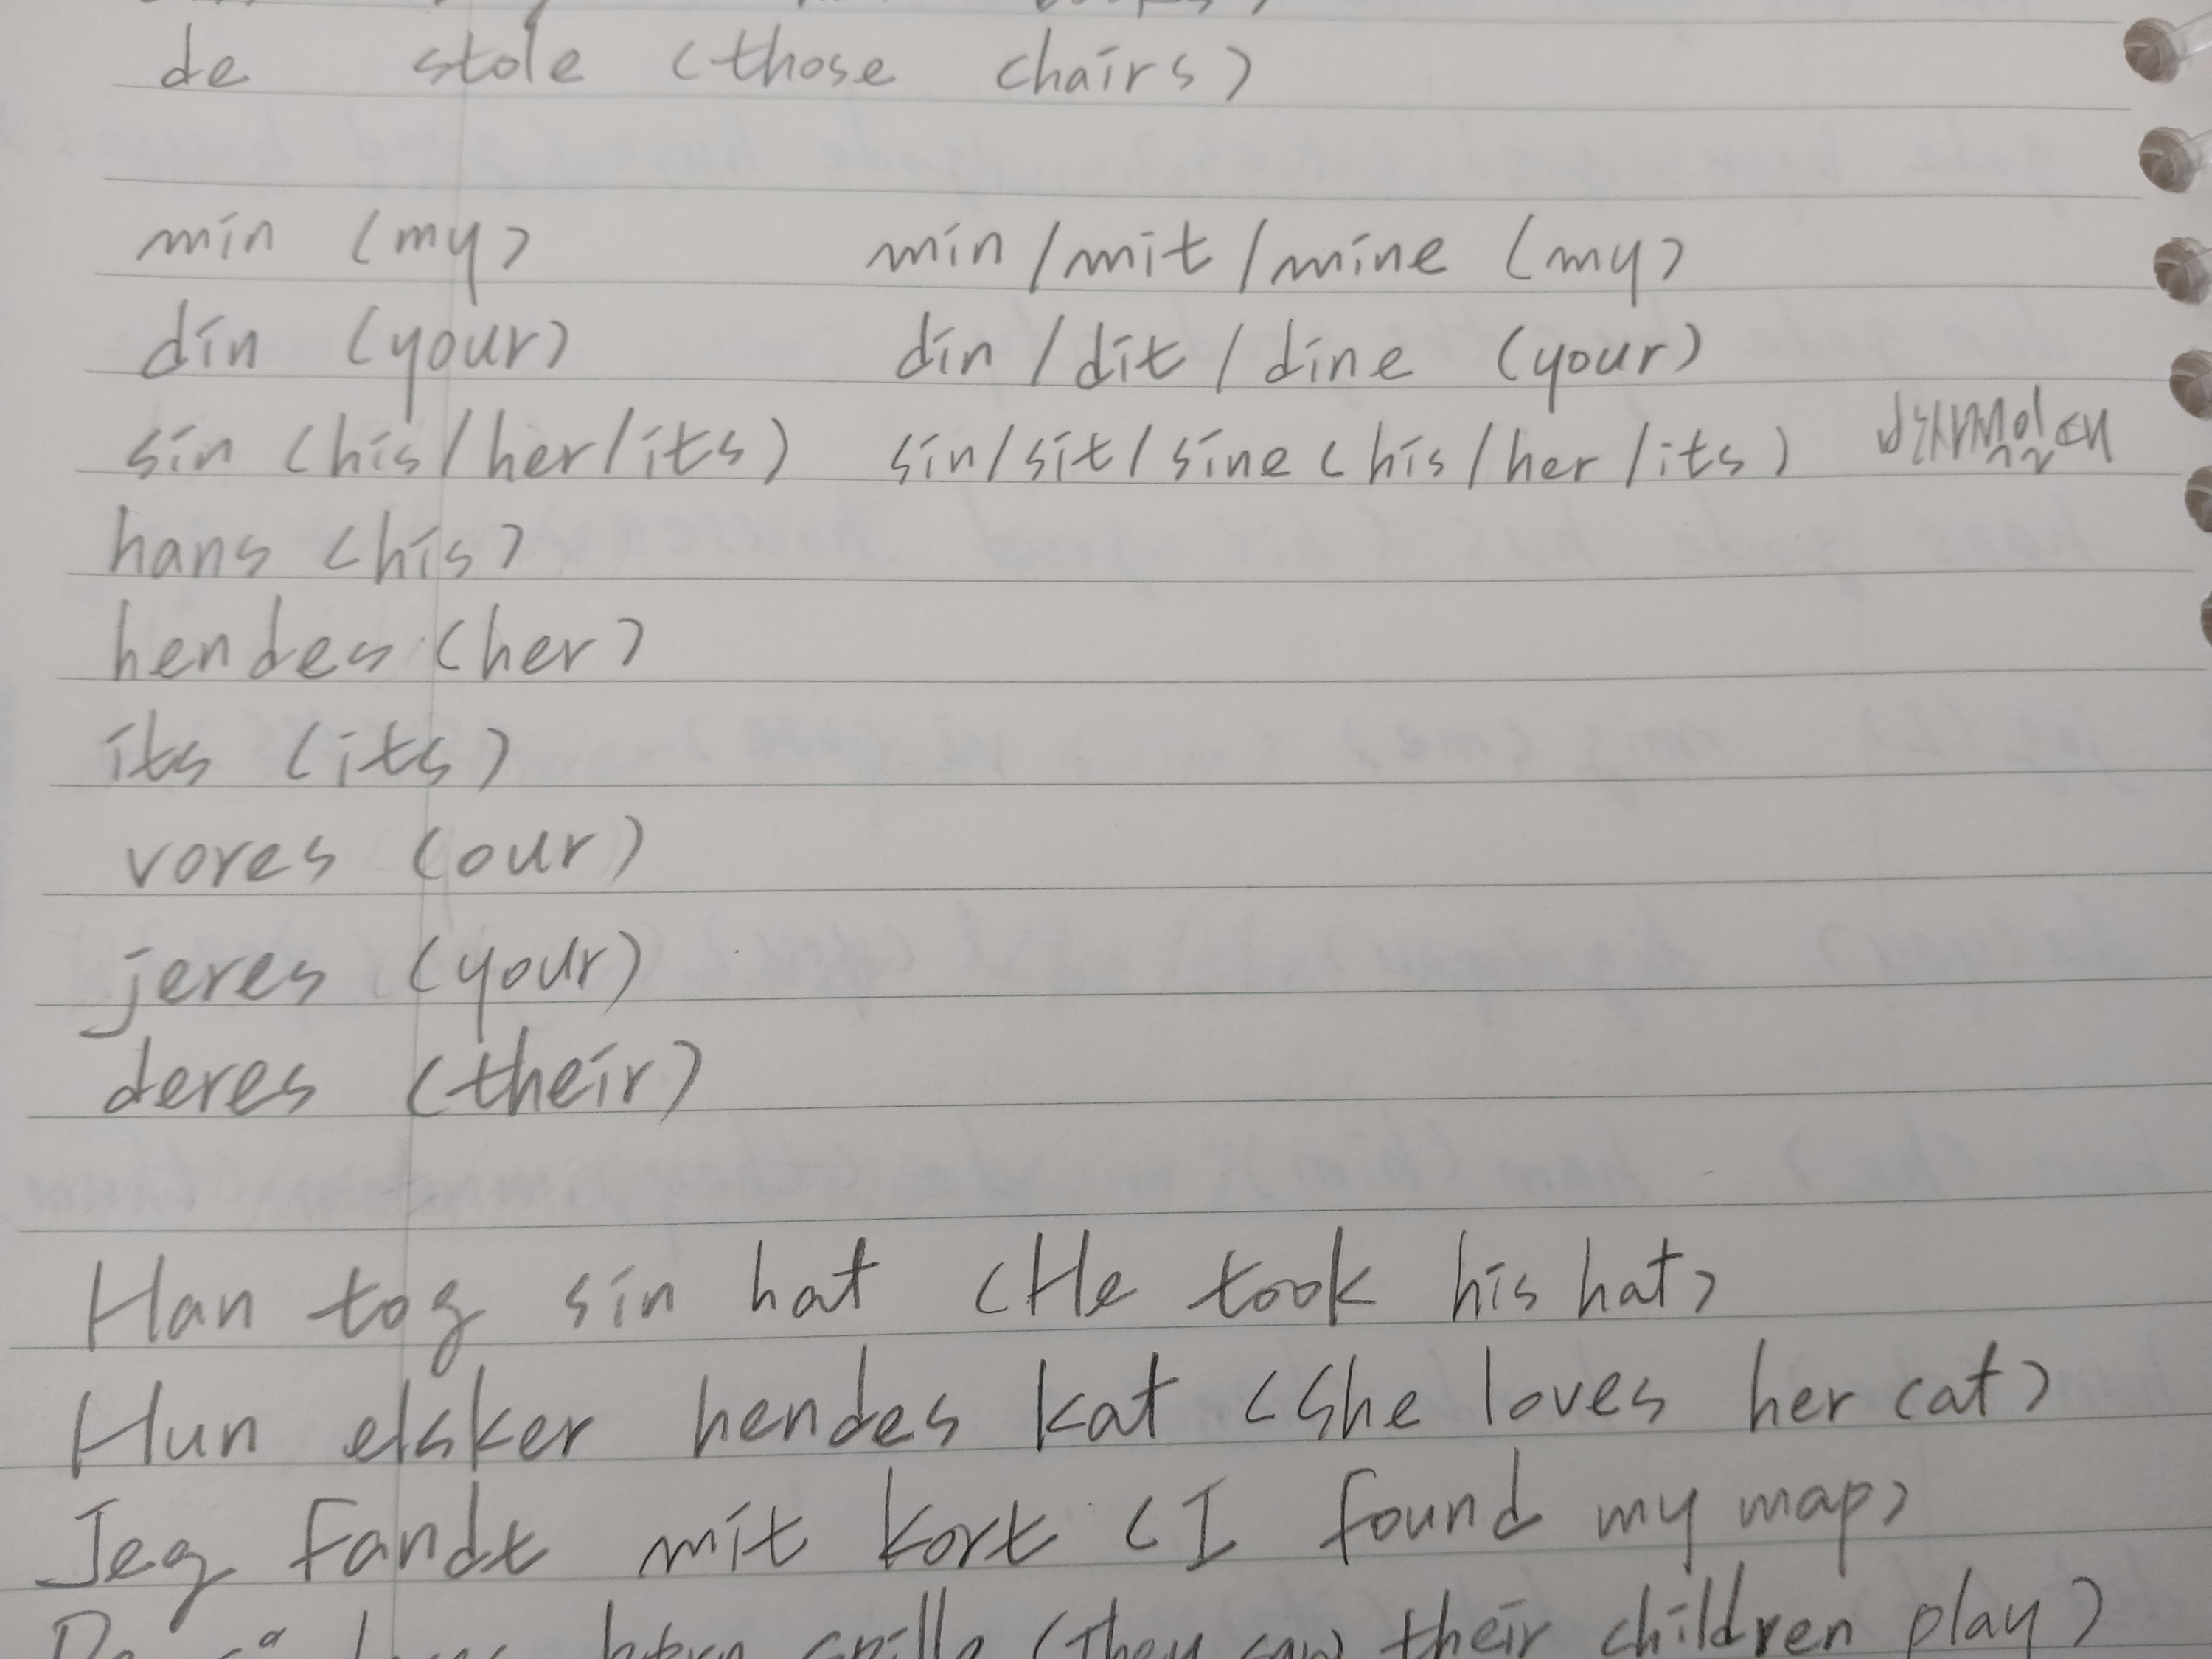 de stole (those chairs)
min (my) min/mit/mine (my)
din (your) din/dit/dine (your)
sin (his/her/its) sin/sit/sine (his/her/its)
hans (his)
hendes (her)
its (its)
vores (our)
jeres (your)
deres (their)
Han tog sin hat (He took his hat)
Hun elsker hendes kat (She loves her cat)
Jeg fandt mit kort (I found my map)
(They saw their children play)